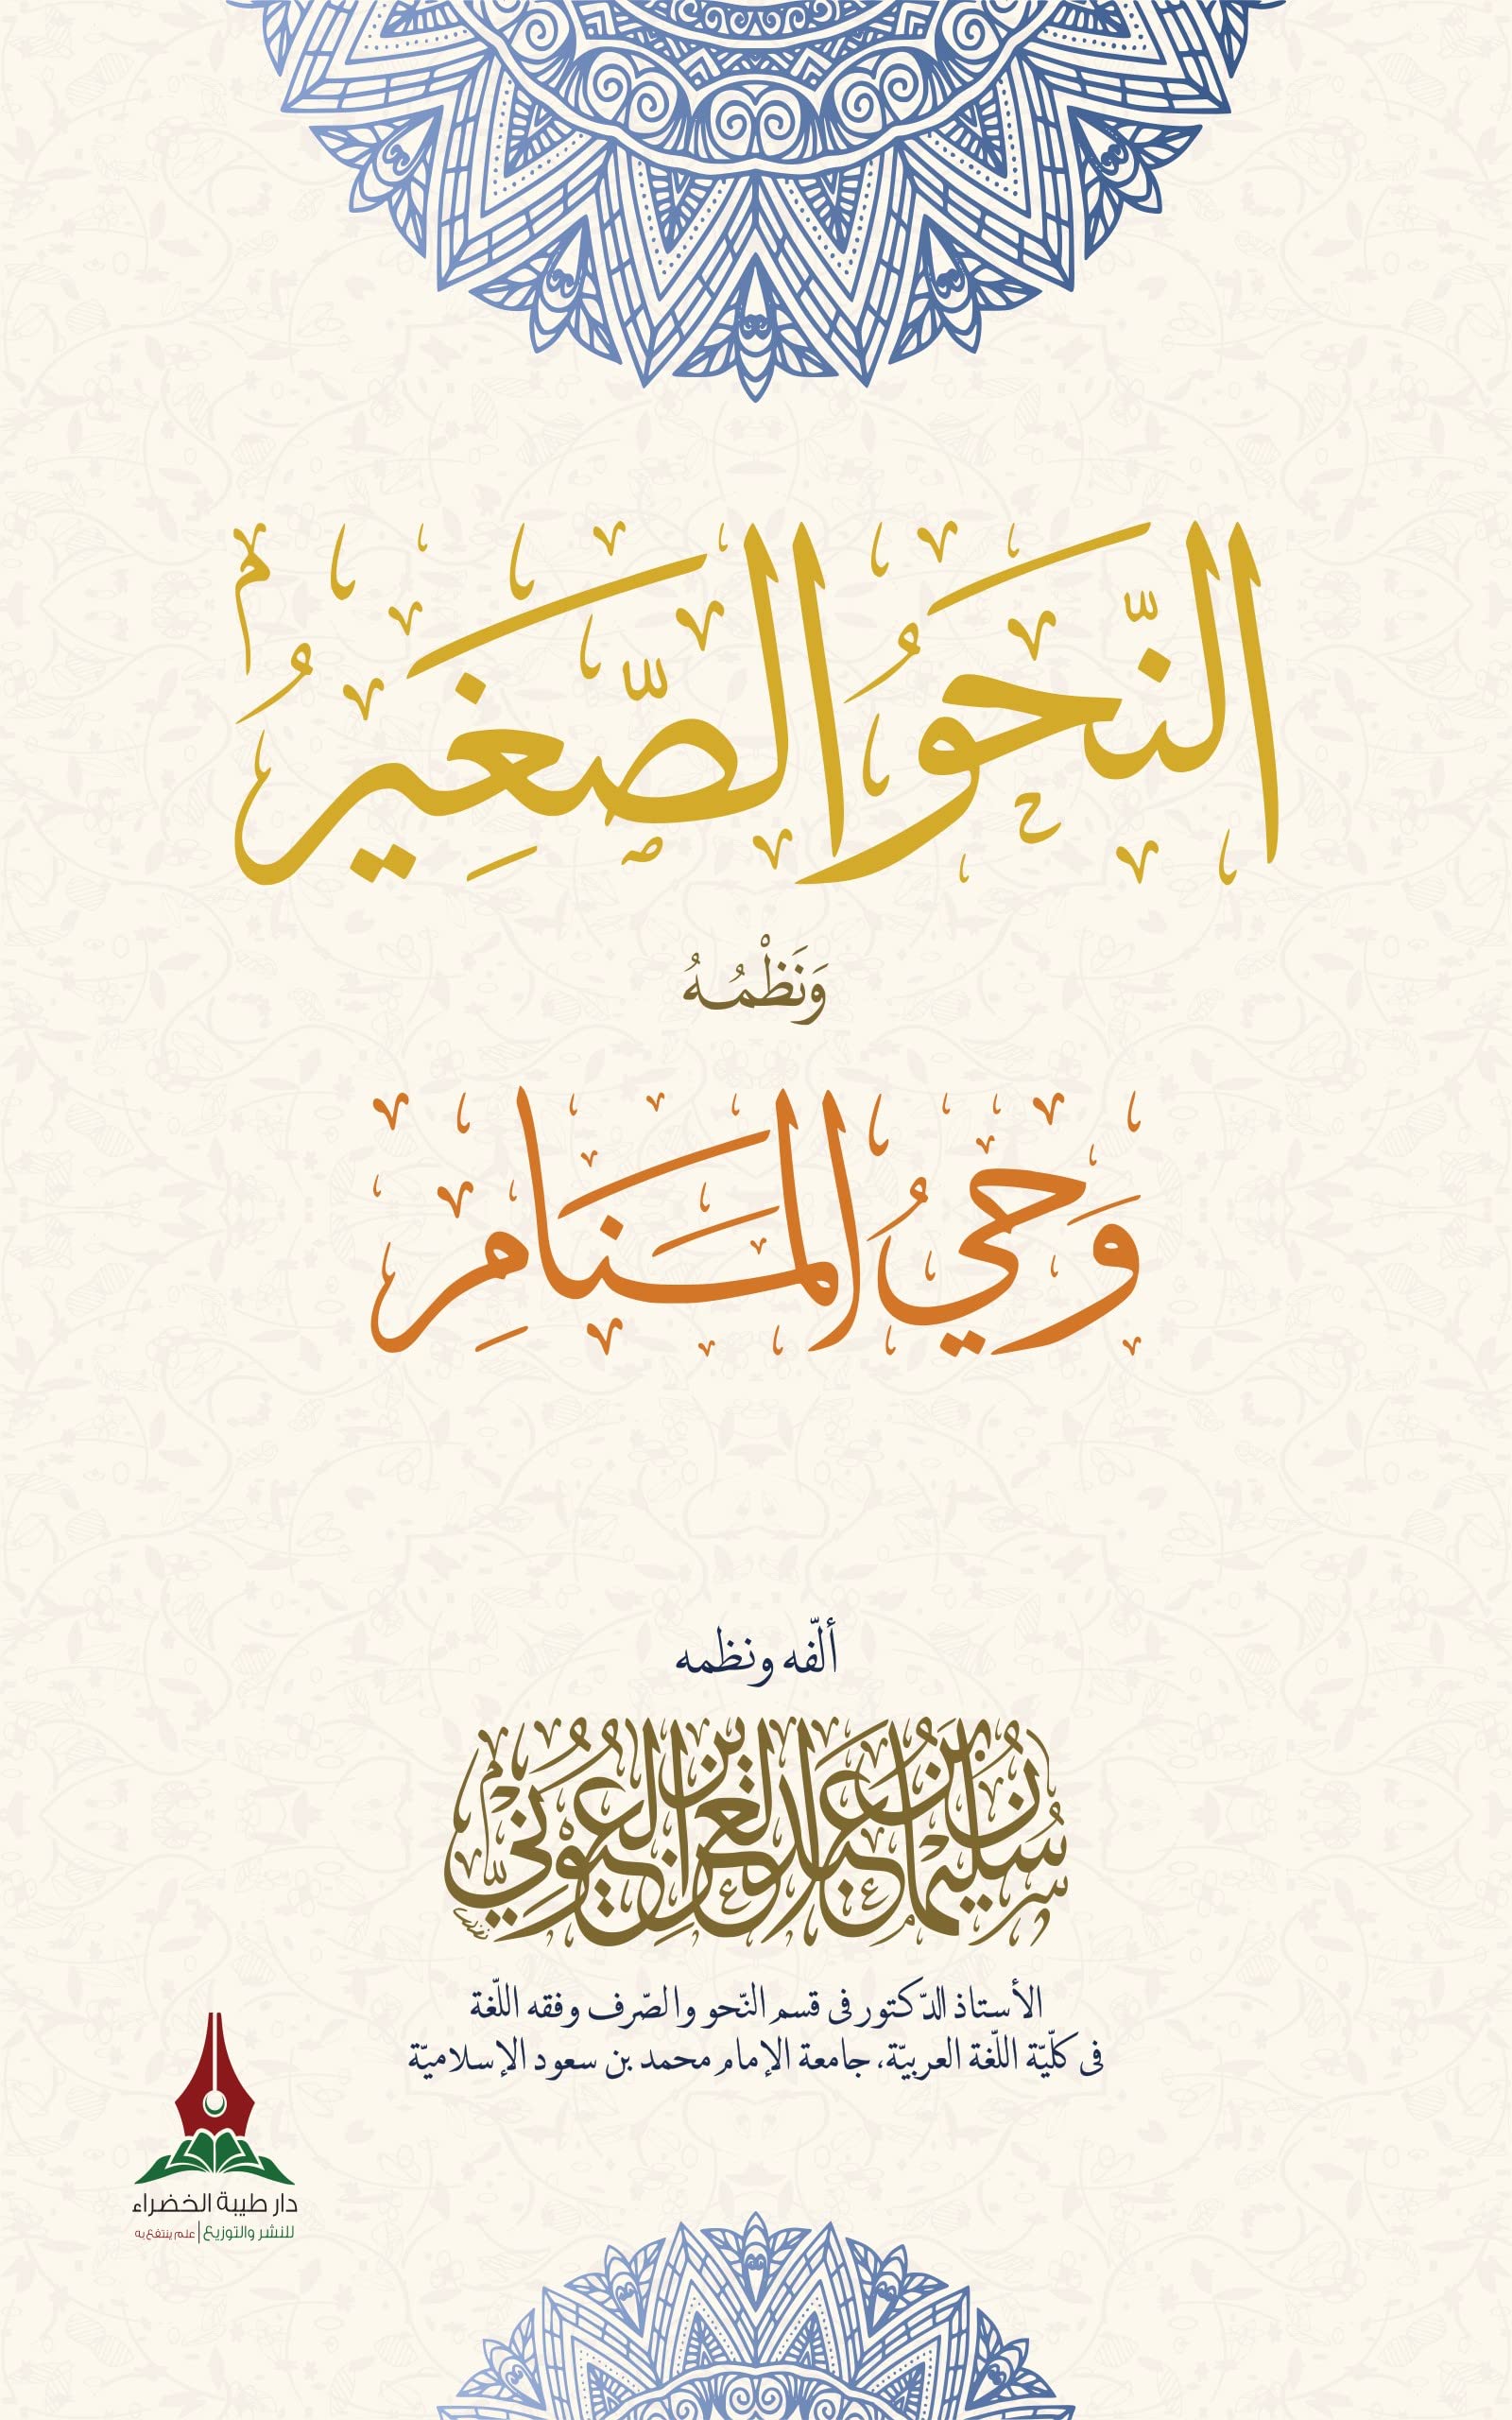 النَّحوُ الصَّغِيرُ
وَنَظْمُهُ
وَحيُ المَنَامِ
ألّفه ونظمه
سُليمانُ بنُ عبدِ العزيزِ العُيُونيُّ
الأستاذ الدّكتور فى قسم النّحو والصّرف وفقه اللّغة
فى كلّيّة اللّغة العربيّة، جامعة الإمام محمد بن سعود الإسلاميّة
دار طيبة الخضراء
للنشر والتوزيع | علم ينتفع به